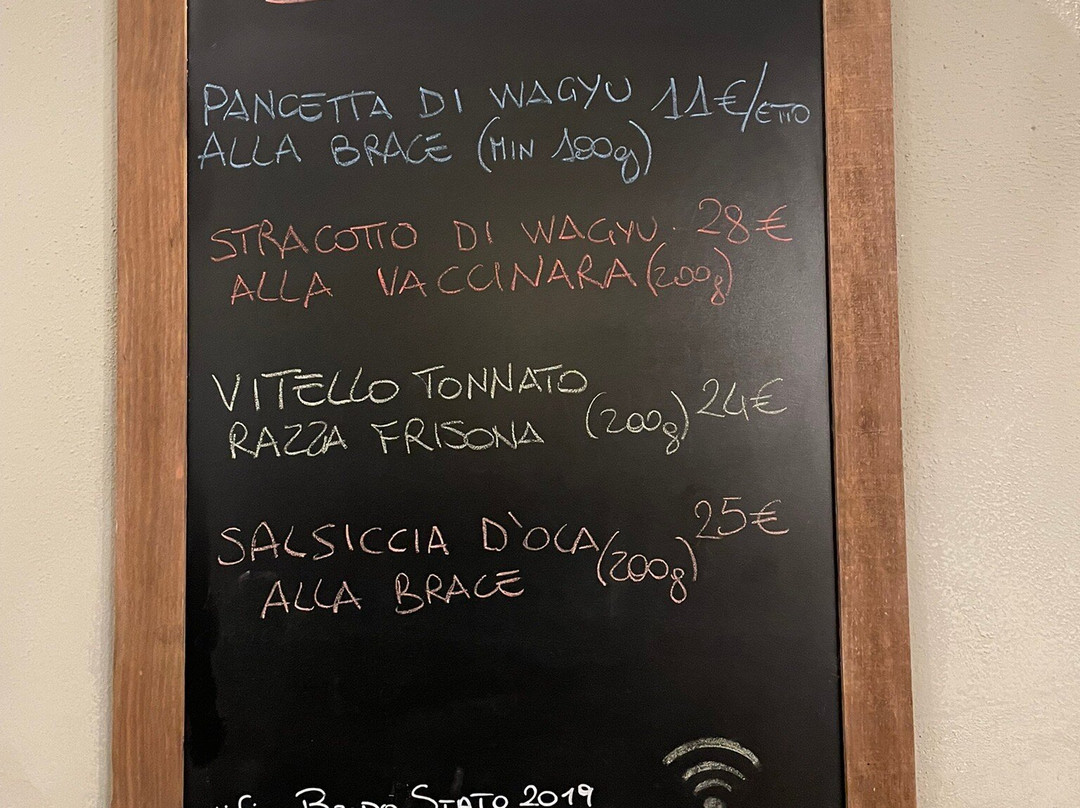 PANCETTA DI WAGYU 11€/ETTO
ALLA BRACE (MIN 100g)
STRACOTTO DI WAGYU 28€
ALLA VACCINARA (200g)
VITELLO TONNATO
RAZZA FRISONA (200g) 24€
SALSICCIA D'OCA (200g) 25€
ALLA BRACE
STATO 2019